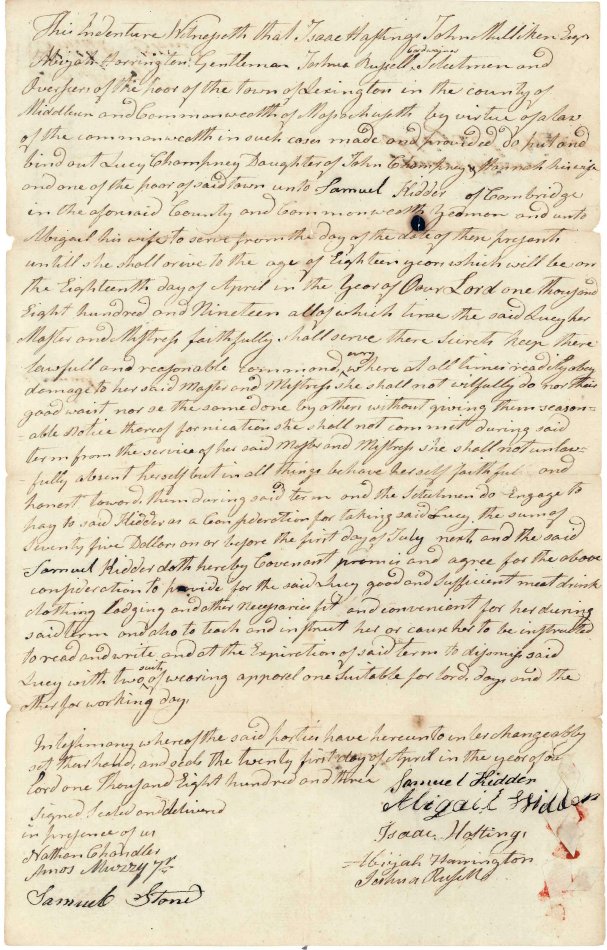 This Indenture Witnesseth that Isaac Hastings John Mulliken Esqr
Abijah Harrington Gentleman Joshua Russell Selectmen and
Overseers of the poor of the town of Lexington in the county of
Middlesex and Commonwealth of Massachusetts by virtue of a law
of the commonwealth in such cases made and provided Do put and
bind out Lucy Champney Daughter of John Champney & Hannah his wife
and one of the poor of said town unto Samuel Kidder of Cambridge
in the aforesaid County and Commonwealth Yeoman and unto
Abigail his wife to serve from the day of the date of these presents
untill she shall arive to the age of Eighteen years which will be on
the Eighteenth day of April in the Year of Our Lord one thousand
Eight hundred and Nineteen all of which time the said Lucy her
Master and Mistress faithfully shall serve there Secrets keep there
lawfull and reasonable commands every where at all times readily obey
damage to her said Master and Mistress she shall not wilfully do nor their
good waist nor se the same done by others without giving them season-
-able Notice thereof fornication she shall not commit during said
term from the service of her said Master and Mistress she shall not unlaw-
-fully absent herself but in all things behave herself faithful and
honest toward them during said term and the Selectmen do Engage to
pay to said Kidder as a Consideration for taking said Lucy the sum of
Seventy five Dollars on or before the first day of July next and the said
Samuel Kidder doth hereby Covenant promis and agree for the above
consideration to provide for the said Lucy good and Sufficient meat drink
clothing lodging and other necessaries fit and convenient for her during
said term and also to teach and instruct her or cause her to be instructed
to read and write and at the Expiration of said term to dismiss said
Lucy with two suits of wearing apparel one Suitable for lords days and the
other for working days
In testimony whereof the said parties have hereunto interchangeably
set their hands and seals the twenty first day of April in the year of our
lord one thousand Eight hundred and three
Samuel Kidder
Signed Sealed and delivered
Abigail Kidder
in presence of us
Isaac Hastings
Nathan Chandler
Abijah Harrington
Amos Muzzy Jr
Joshua Russell
Samuel Stone